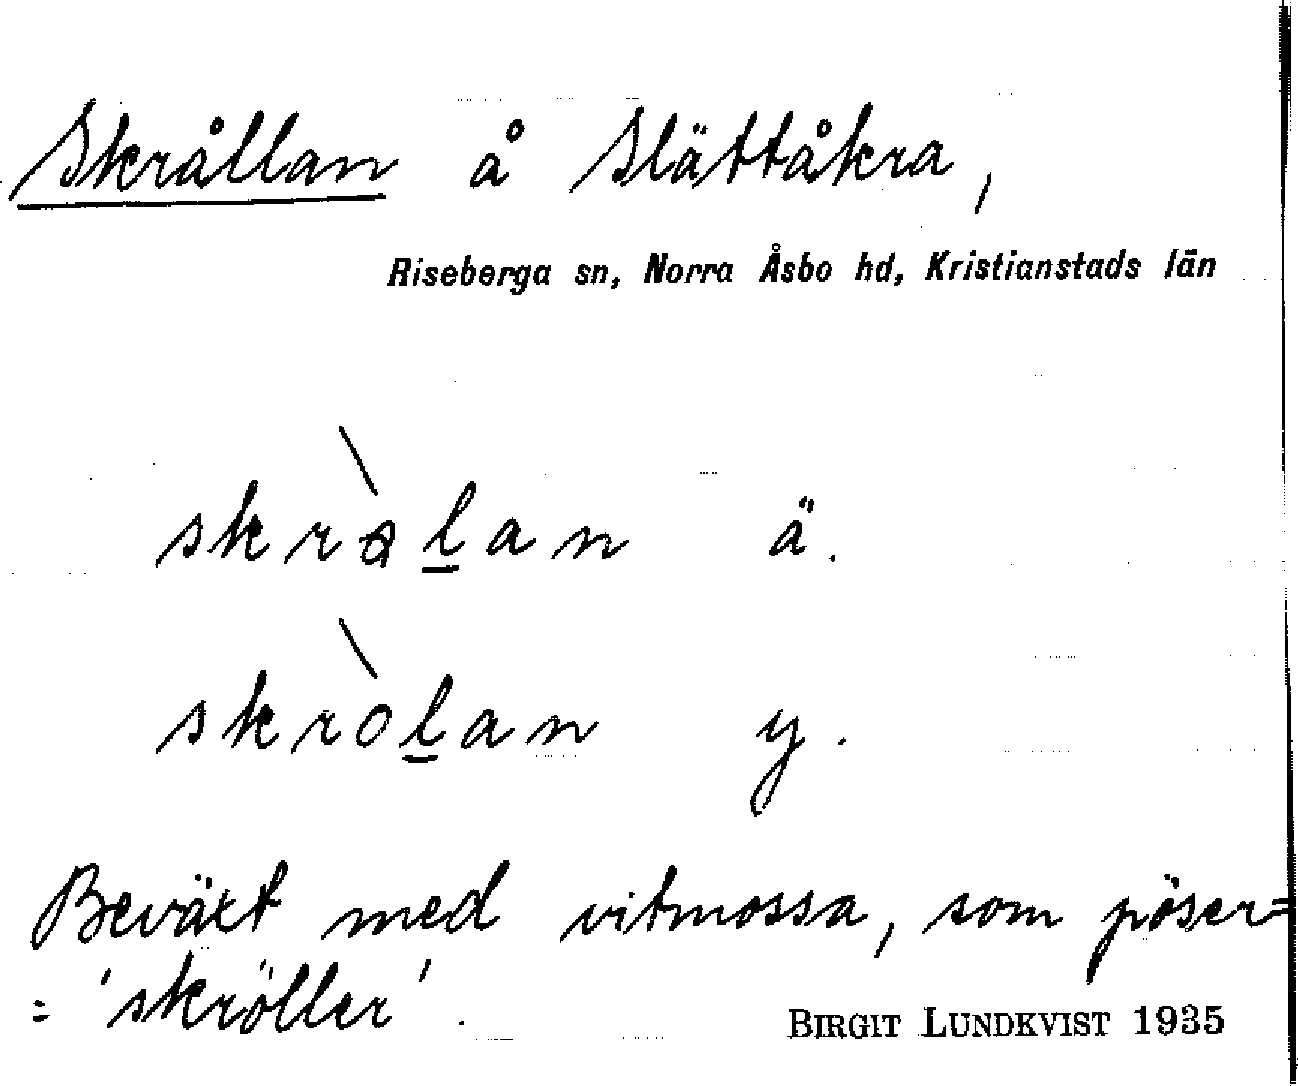 Skrållan å Slättåkra,
Riseberga sn, Norra Åsbo hd, Kristianstads län
skròlan ä.
skròlan y.
Beväxt med vitmossa, som pöser=
= 'skröller'.
BIRGIT LUNDKVIST 1935